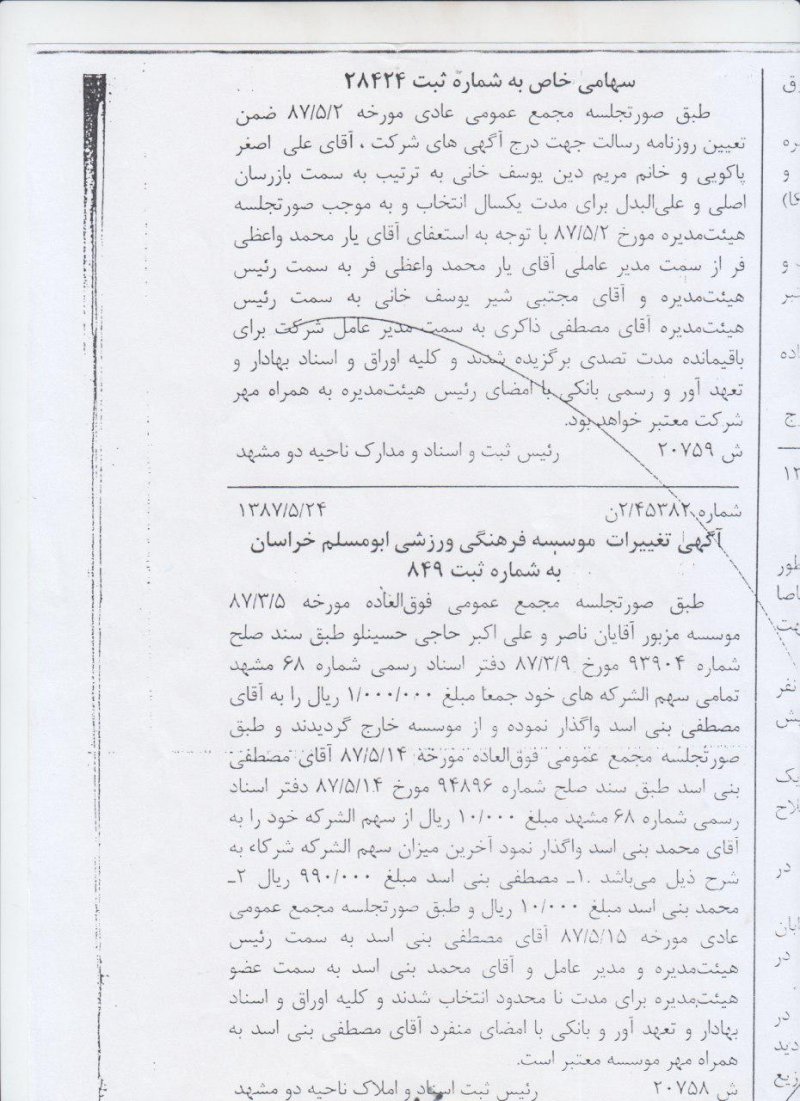 سهامی خاص به شماره ثبت ۲۸۴۲۴
طبق صورتجلسه مجمع عمومی عادی مورخه ۸۷/۵/۲ ضمن
تعیین روزنامه رسالت جهت درج آگهی های شرکت ، آقای علی اصغر
پاکویی و خانم مریم دین یوسف خانی به ترتیب به سمت بازرسان
اصلی و علی‌البدل برای مدت یکسال انتخاب و به موجب صورتجلسه
هیئت‌مدیره مورخ ۸۷/۵/۲ با توجه به استعفای آقای یار محمد واعظی
فر از سمت مدیر عاملی آقای یار محمد واعظی فر به سمت رئیس
هیئت‌مدیره و آقای مجتبی شیر یوسف خانی به سمت رئیس
هیئت‌مدیره آقای مصطفی ذاکری به سمت مدیر عامل شرکت برای
باقیمانده مدت تصدی برگزیده شدند و کلیه اوراق و اسناد بهادار و
تعهد آور و رسمی بانکی با امضای رئیس هیئت‌مدیره به همراه مهر
شرکت معتبر خواهد بود.
ش ۲۰۷۵۹ رئیس ثبت و اسناد و مدارک ناحیه دو مشهد
شماره ۲/۴۵۳۸۲ن ۱۳۸۷/۵/۲۴
آگهی تغییرات موسسه فرهنگی ورزشی ابومسلم خراسان
به شماره ثبت ۸۴۹
طبق صورتجلسه مجمع عمومی فوق‌العاده مورخه ۸۷/۳/۵
موسسه مزبور آقایان ناصر و علی اکبر حاجی حسینلو طبق سند صلح
شماره ۹۳۹۰۴ مورخ ۸۷/۳/۹ دفتر اسناد رسمی شماره ۶۸ مشهد
تمامی سهم الشرکه های خود جمعا مبلغ ۱/۰۰۰/۰۰۰ ریال را به آقای
مصطفی بنی اسد واگذار نموده و از موسسه خارج گردیدند و طبق
صورتجلسه مجمع عمومی فوق‌العاده مورخه ۸۷/۵/۱۴ آقای مصطفی
بنی اسد طبق سند صلح شماره ۹۴۸۹۶ مورخ ۸۷/۵/۱۴ دفتر اسناد
رسمی شماره ۶۸ مشهد مبلغ ۱۰/۰۰۰ ریال از سهم الشرکه خود را به
آقای محمد بنی اسد واگذار نمود آخرین میزان سهم الشرکه شرکاء به
شرح ذیل می‌باشد .۱ـ مصطفی بنی اسد مبلغ ۹۹۰/۰۰۰ ریال ۲ـ
محمد بنی اسد مبلغ ۱۰/۰۰۰ ریال و طبق صورتجلسه مجمع عمومی
عادی مورخه ۸۷/۵/۱۵ آقای مصطفی بنی اسد به سمت رئیس
هیئت‌مدیره و مدیر عامل و آقای محمد بنی اسد به سمت عضو
هیئت‌مدیره برای مدت نا محدود انتخاب شدند و کلیه اوراق و اسناد
بهادار و تعهد آور و بانکی با امضای منفرد آقای مصطفی بنی اسد به
همراه مهر موسسه معتبر است.
ش ۲۰۷۵۸ رئیس ثبت اسناد و املاک ناحیه دو مشهد